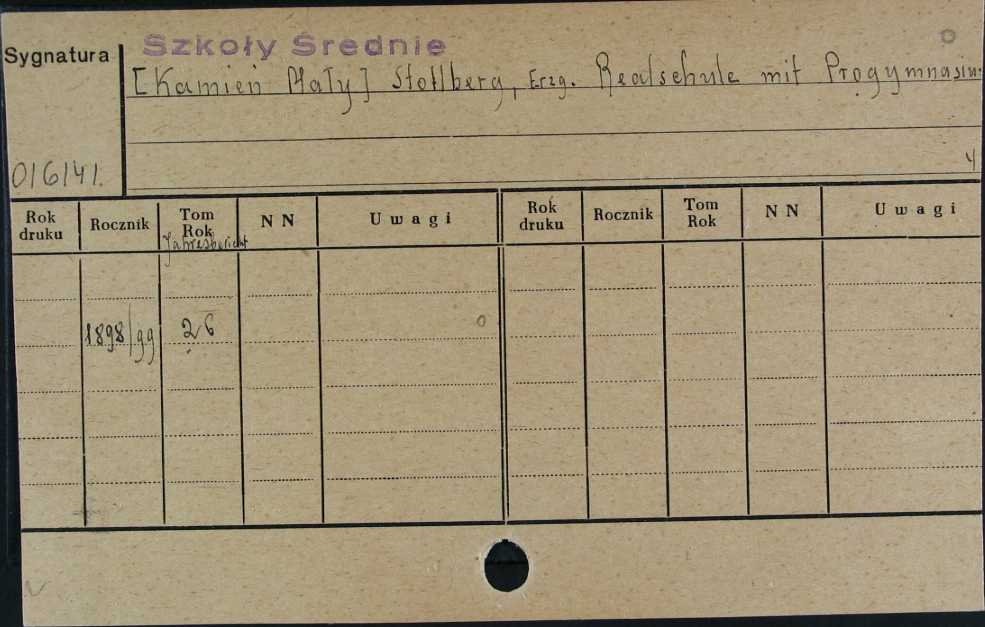 Szkoły Średnie
Sygnatura
[Kamień Mały] Stollberg, Erzg. Realschule mit Progymnasium
4
016141.
Rok druku Rocznik Tom Rok NN Uwagi Rok druku Rocznik Tom Rok NN Uwagi
Jahresbericht
1898/99 26